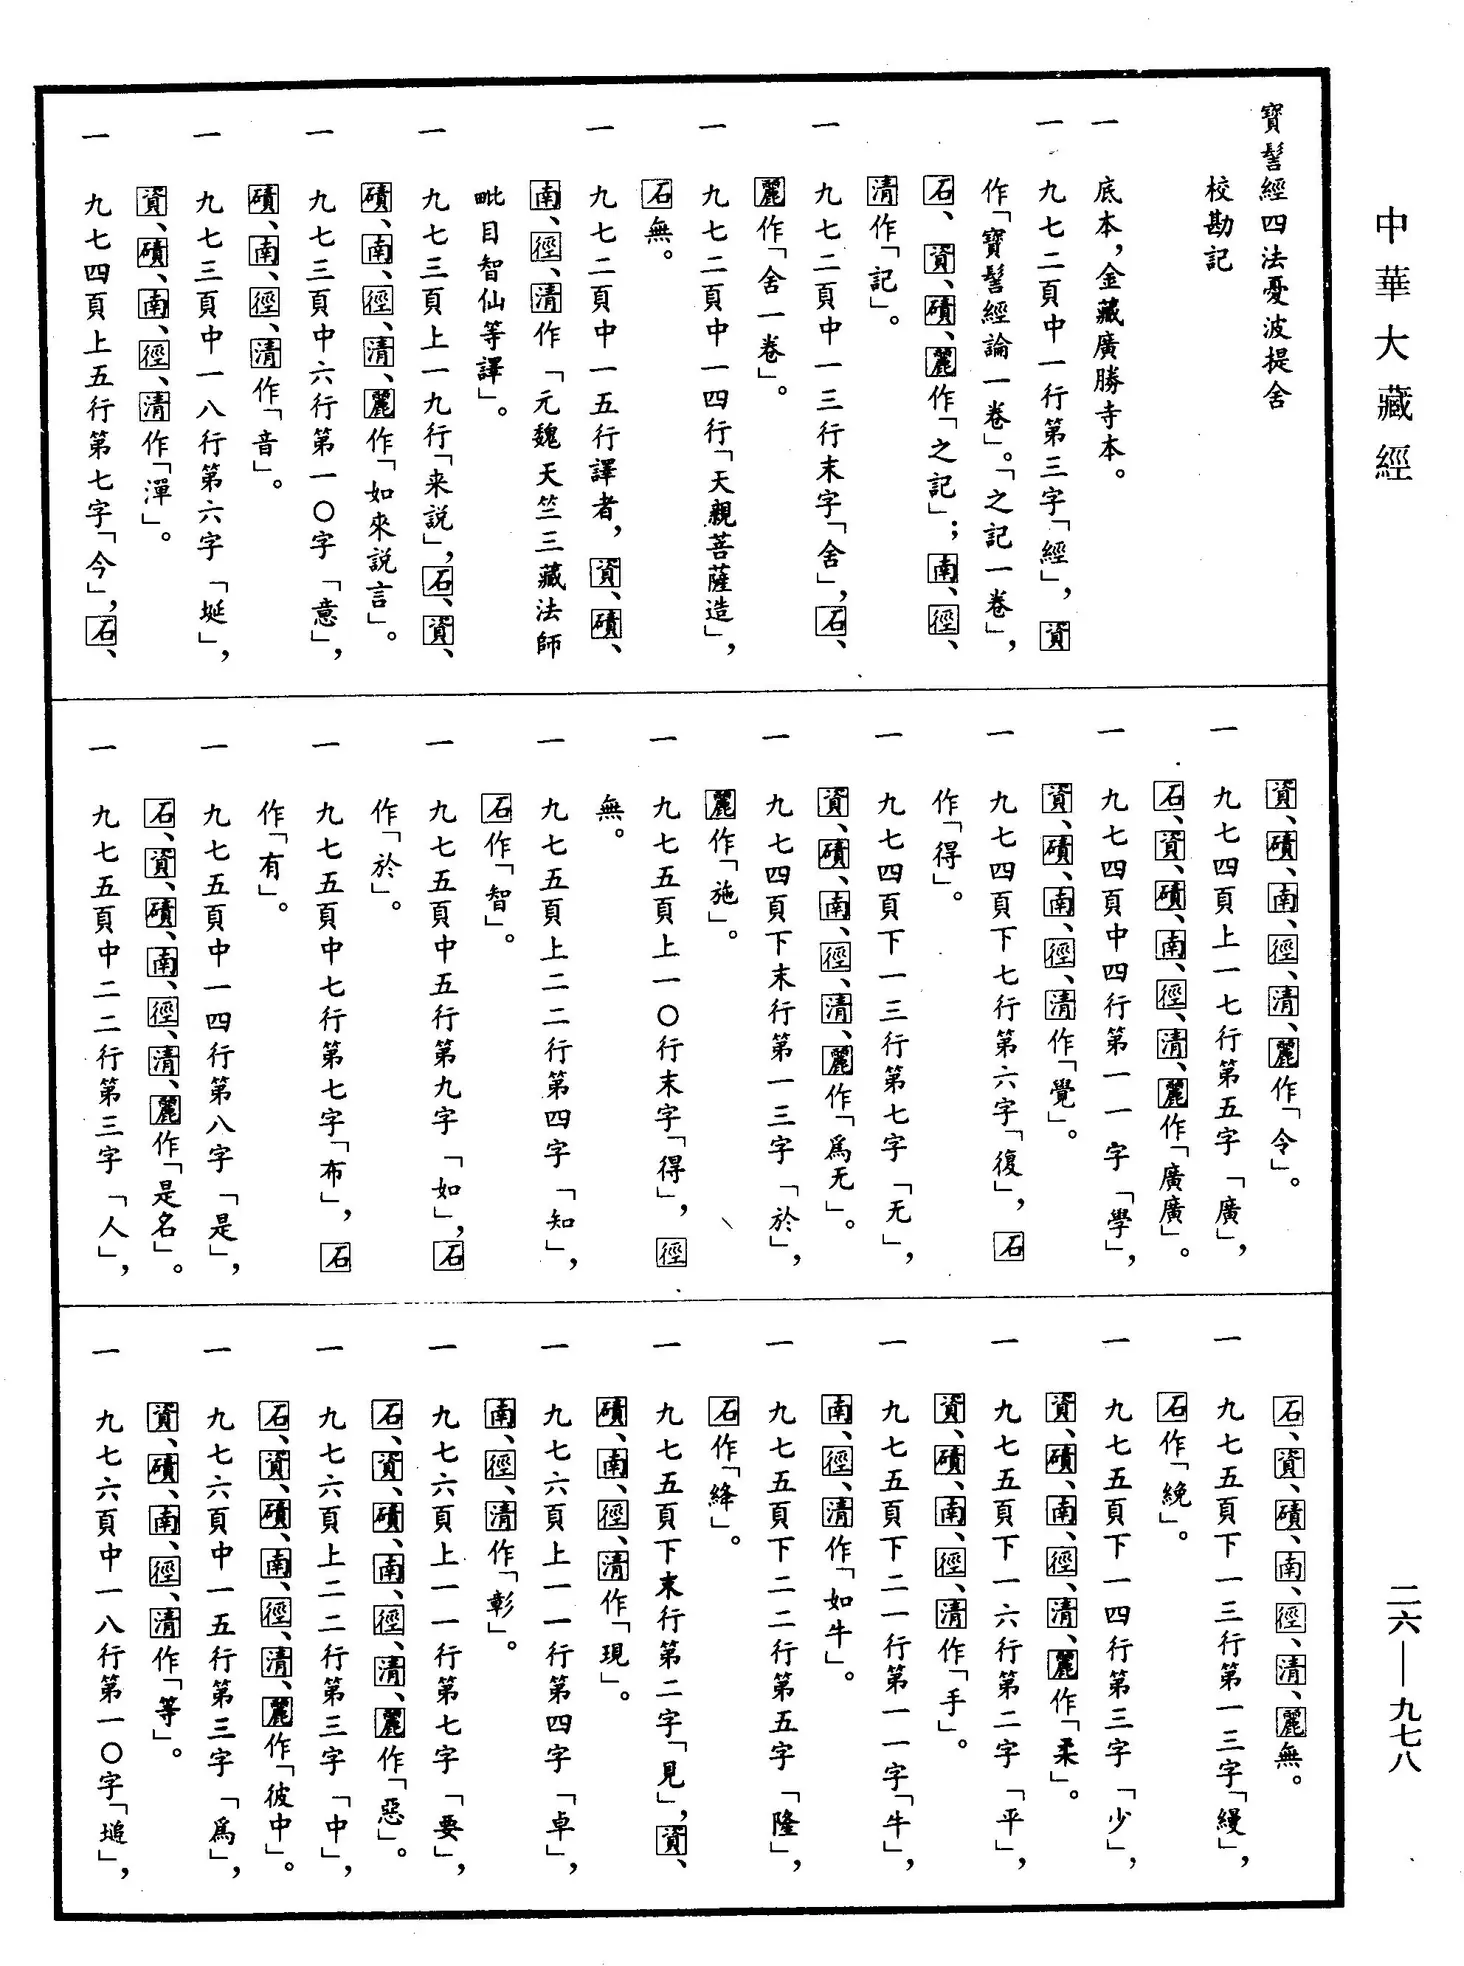 中華大藏經
寶髻經四法憂波提舍
校勘記
一 底本，金藏廣勝寺本。
一 九七二頁中一行第三字「經」，資
作「寶髻經論一卷」。「之記一卷」，
石、資、磧、麗作「之記」；南、徑、
清作「記」。
一 九七二頁中一三行末字「舍」，石、
麗作「舍一卷」。
一 九七二頁中一四行「天親菩薩造」，
石無。
一 九七二頁中一五行譯者，資、磧、
南、徑、清作「元魏天竺三藏法師
毗目智仙等譯」。
一 九七三頁上一九行「来説」，石、資、
磧、南、徑、清、麗作「如來説言」。
一 九七三頁中六行第一〇字「意」，
磧、南、徑、清作「音」。
一 九七三頁中一八行第六字「埏」，
資、磧、南、徑、清作「潬」。
一 九七四頁上五行第七字「今」，石、
資、磧、南、徑、清、麗作「令」。
一 九七四頁上一七行第五字「廣」，
石、資、磧、南、徑、清、麗作「廣廣」。
一 九七四頁中四行第一一字「學」，
資、磧、南、徑、清作「覺」。
一 九七四頁下七行第六字「復」，石
作「得」。
一 九七四頁下一三行第七字「无」，
資、磧、南、徑、清、麗作「爲无」。
一 九七四頁下末行第一三字「於」，
麗作「施」。
一 九七五頁上一〇行末字「得」，徑
無。
一 九七五頁上二二行第四字「知」，
石作「智」。
一 九七五頁中五行第九字「如」，石
作「於」。
一 九七五頁中七行第七字「布」，石
作「有」。
一 九七五頁中一四行第八字「是」，
石、資、磧、南、徑、清、麗作「是名」。
一 九七五頁中二二行第三字「人」，
石、資、磧、南、徑、清、麗無。
一 九七五頁下一三行第一三字「縵」，
石作「絻」。
一 九七五頁下一四行第三字「少」，
資、磧、南、徑、清、麗作「柔」。
一 九七五頁下一六行第二字「平」，
資、磧、南、徑、清作「手」。
一 九七五頁下二一行第一一字「牛」，
南、徑、清作「如牛」。
一 九七五頁下二二行第五字「隆」，
石作「絳」。
一 九七五頁下末行第二字「見」，資、
磧、南、徑、清作「現」。
一 九七六頁上一一行第四字「卓」，
南、徑、清作「彰」。
一 九七六頁上一一行第七字「要」，
石、資、磧、南、徑、清、麗作「惡」。
一 九七六頁上二二行第三字「中」，
石、資、磧、南、徑、清、麗作「彼中」。
一 九七六頁中一五行第三字「爲」，
資、磧、南、徑、清作「等」。
一 九七六頁中一八行第一〇字「塠」，
二六——九七八